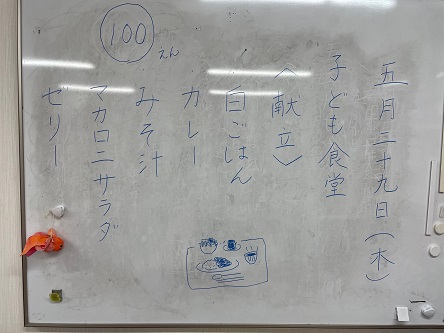 五月二十九日(木)
子ども食堂
〈献立〉
白ごはん
カレー
みそ汁
マカロニサラダ
ゼリー
100えん